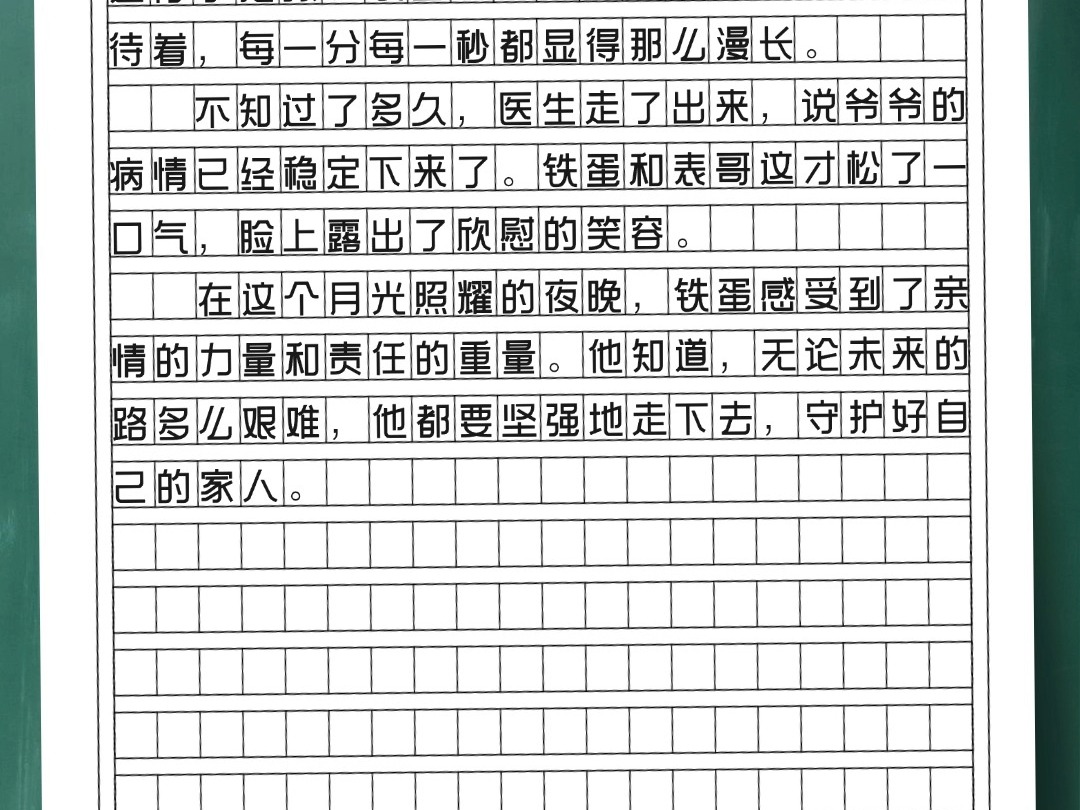 待着，每一分每一秒都显得那么漫长。
不知过了多久，医生走了出来，说爷爷的
病情已经稳定下来了。铁蛋和表哥这才松了一
口气，脸上露出了欣慰的笑容。
在这个月光照耀的夜晚，铁蛋感受到了亲
情的力量和责任的重量。他知道，无论未来的
路多么艰难，他都要坚强地走下去，守护好自
己的家人。